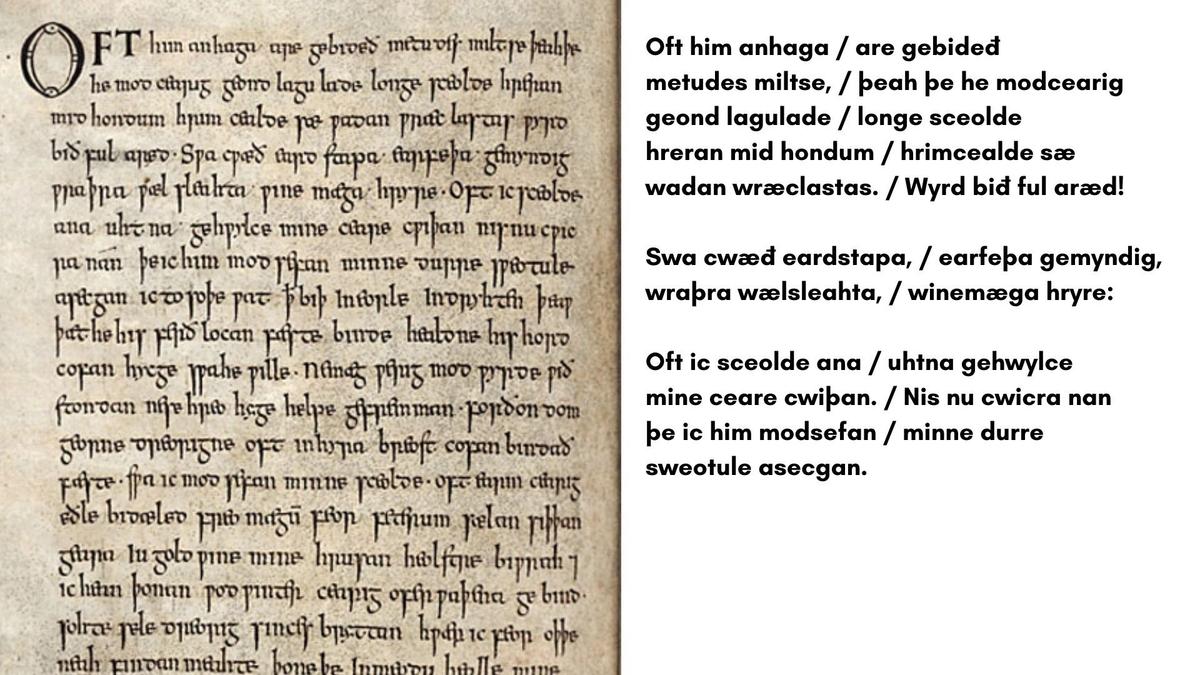 OFT him anhaga are gebideð metudes miltse þeahþe
he mod cearig geond lagu lade longe sceolde hreran
mid hondum hrim cealde sæ ƿadan ƿræc lastas ƿyrd
bið ful aræd· Sƿa cƿæð eard stapa earfeþa gemyndig
ƿraþra ƿæl sleahta ƿine mæga hryre· Oft ic sceolde
ana uhtna gehƿylce mine ceare cƿiþan nis nu cƿic
ra nan þeic him mod sefan minne durre sƿeotule
asecgan ic to soþe ƿat ꝥ biþ in eorle indryhten þeaƿ
þæt he his ferð locan fæste binde healdne his hord
cofan hycge sƿahe ƿille· Ne mæg ƿerig mod ƿyrde ƿið
stondan nese hreo hyge helpe gefremman· fordon dom
georne dreorigne oft inhyra breost cofan bindað
fæste· sƿa ic mod sefan minne sceolde· oft earm cearig
eðle bidæled freo mægū feor feterum sælan siþþan
geara iu gold ƿine mine hrusan heolstre biƿrah ⁊
ic hean þonan ƿod ƿinter cearig ofer ƿaþena ge bind·
sohte sele dreorig sinces bryttan hƿær ic feor oþþe
neah findan meahte þone þe in meodu healle mine
Oft him anhaga / are gebideđ
metudes miltse, / þeah þe he modcearig
geond lagulade / longe sceolde
hreran mid hondum / hrimcealde sæ
wadan wræclastas. / Wyrd biđ ful aræd!
Swa cwæđ eardstapa, / earfeþa gemyndig,
wraþra wælsleahta, / winemæga hryre:
Oft ic sceolde ana / uhtna gehwylce
mine ceare cwiþan. / Nis nu cwicra nan
þe ic him modsefan / minne durre
sweotule asecgan.